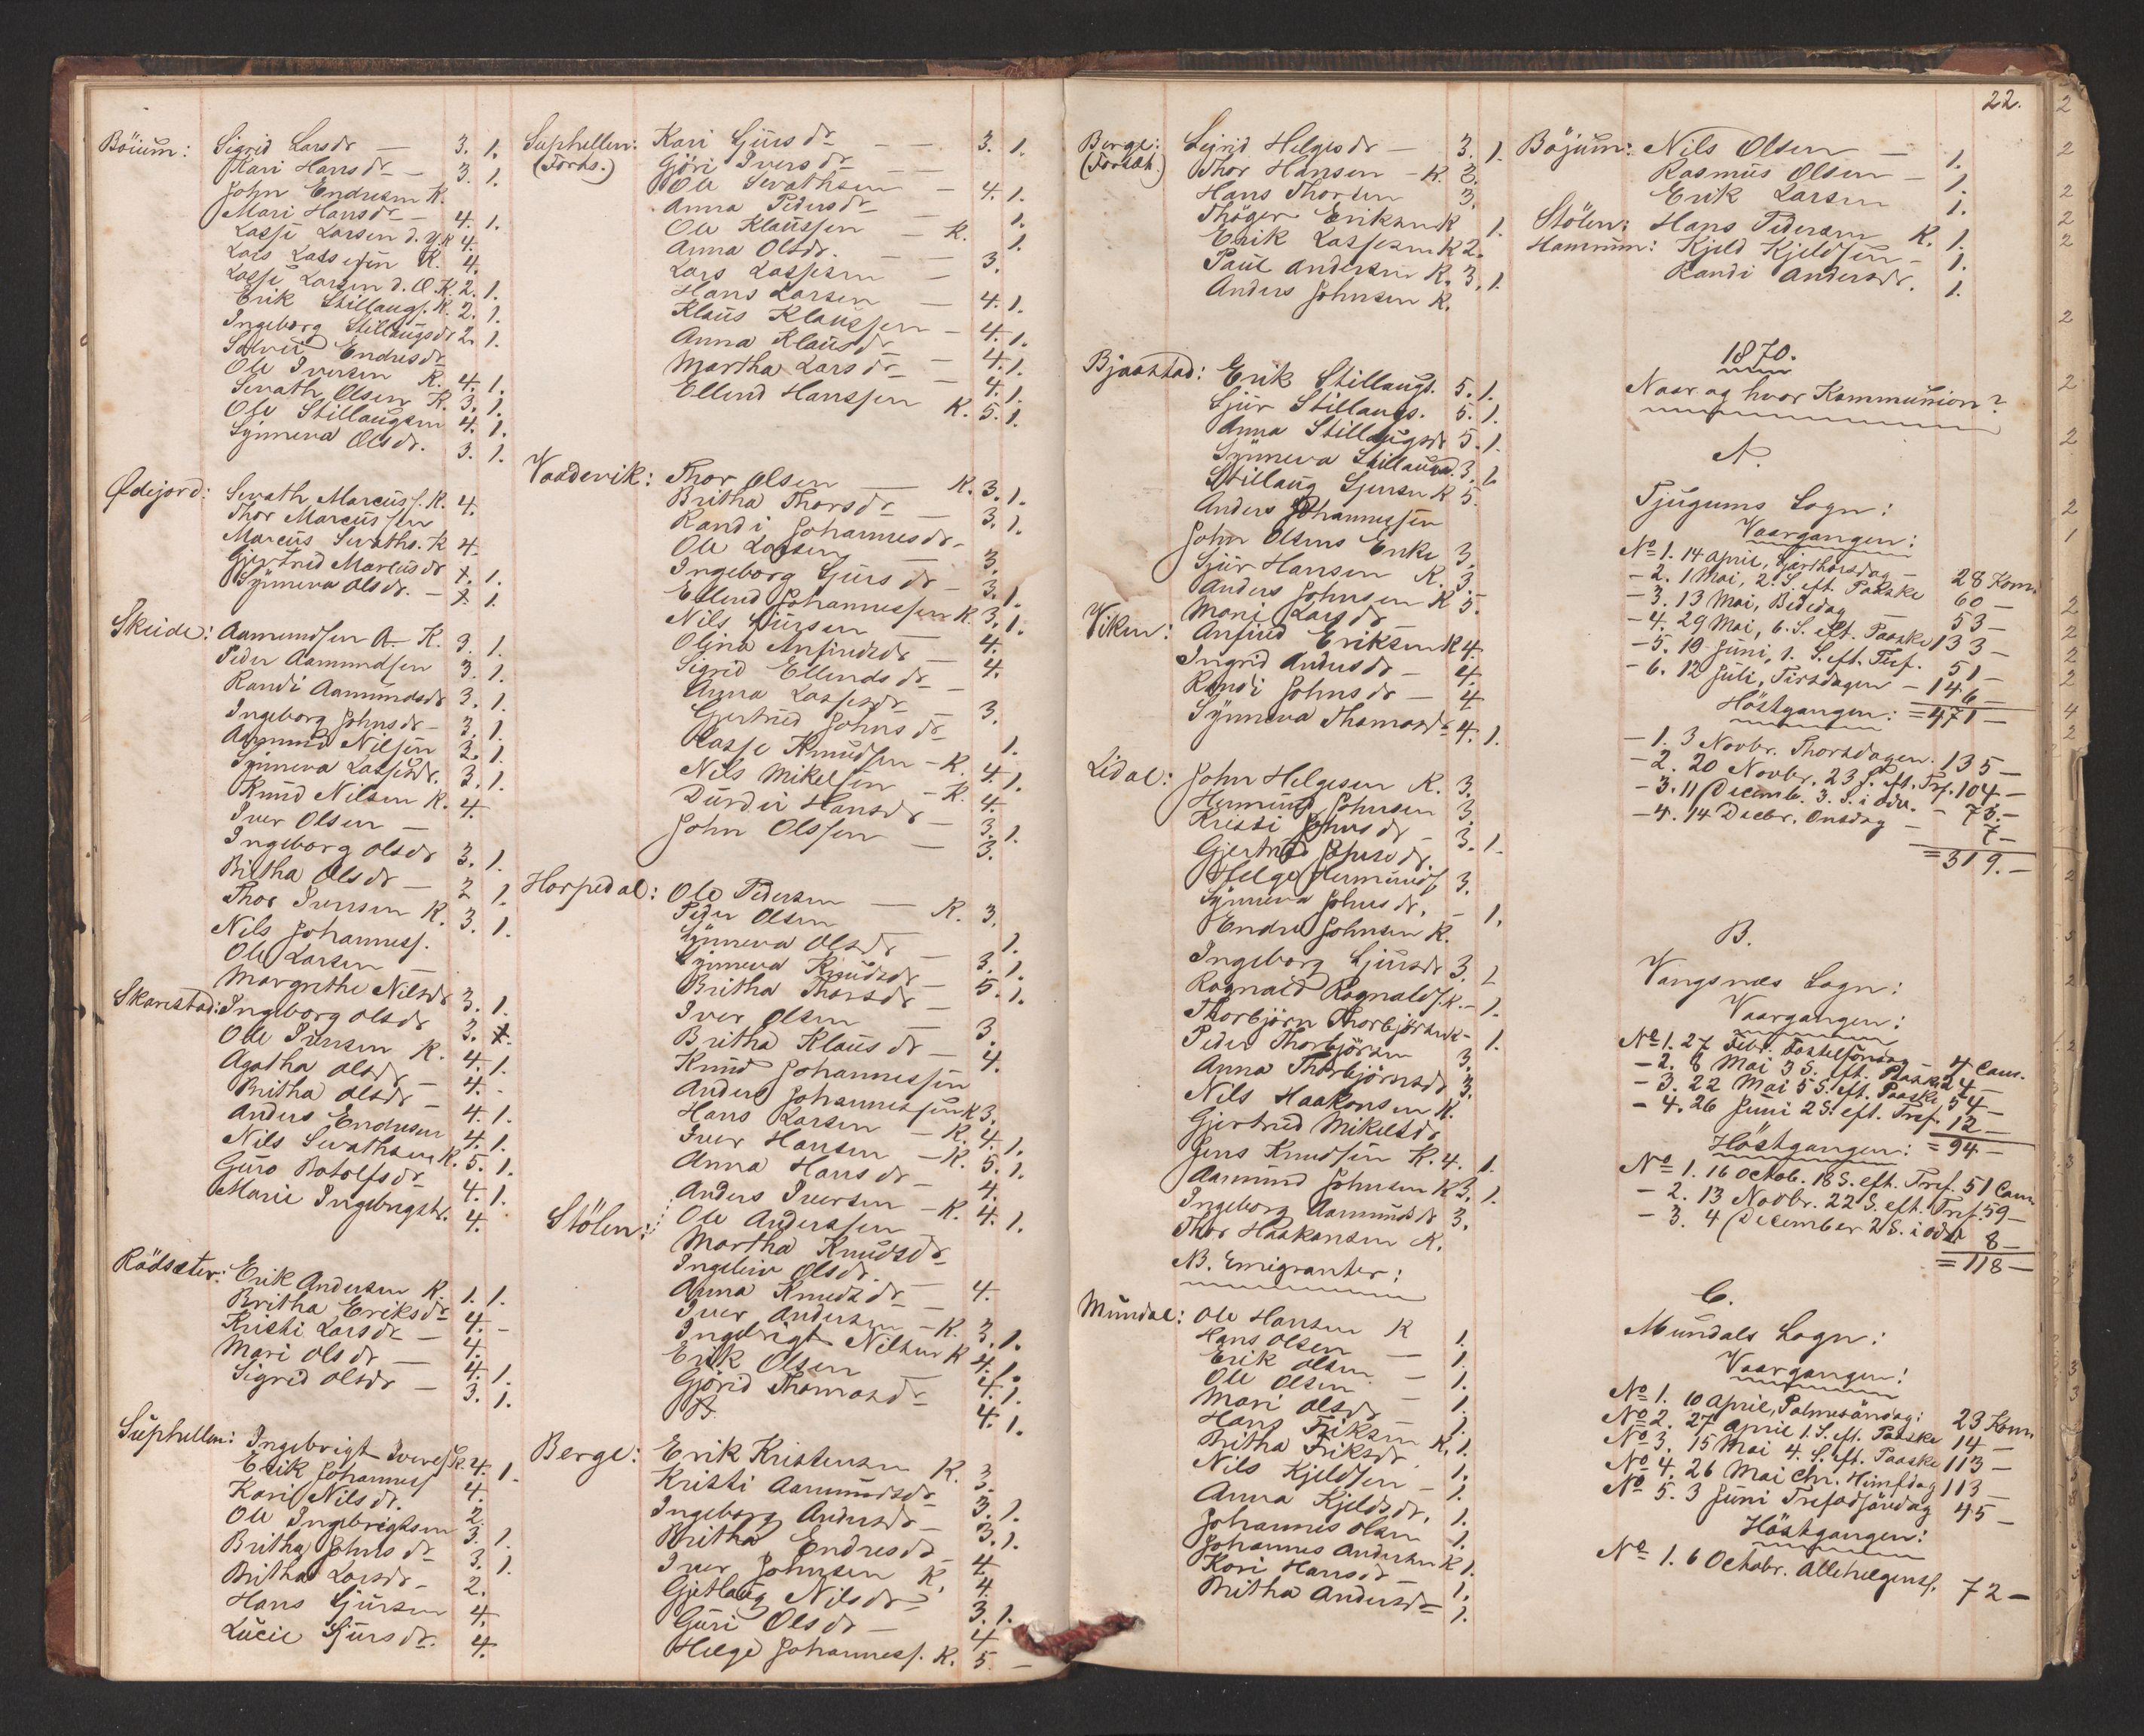 Böium: Sigrid Larsdr — 3. 1.
Kari Hansdr — 3. 1.
John Endresen K.
Mari Hansdr — 4. 1.
Lasse Larsen d. Y. K 4.
Lars Lassesen K. 4.
Lasse Larsen d. Æ. K. 2. 1.
Erik Stillaugs. K. 2. 1.
Ingeborg Stillaugsdr 2. 1.
Endresdr
Ole Iversen K. 4. 1.
Sevath Olsen K. 3. 1.
Ole Stillaugsen 4. 1.
Synneva Olsdr. 3. 1.
Ødejord: Sevath Marcuss. K. 4.
Thor Marcussen
Marcus Sevaths. K 4.
Gjertrud Marcusdr 1.
Synneva Olsdr. — 1.
Skeide: Aamundsen A. K. 3. 1.
Peder Aamundsen 3. 1.
Randi Aamundsdr 3. 1.
Ingeborg Johnsdr — 3. 1.
Aamund Nilsen 3. 1.
Synneva Lassesdr. 3. 1.
Knud Nilsen K. 4.
Iver Olsen —
Ingeborg Olsdr 3. 1.
Britha Olsdr — 2 1.
Thor Iversen K. 3. 1.
Nils Johanness.
Ole Larsen —
Margrethe Nilsdr 3. 1.
Skarestad: Ingeborg Olsdr 3.
Ole Iversen K. 4. 1.
Agatha Olsdr — 4. -
Britha Olsdr — 4. 1.
Anders Endresen 4. 1.
Nils Sevathsen K. 5. 1.
Guro Botolfsdr 4. 1.
Marie Ingebrigtsd. 4.
Rödsæter: Erik Andersen K. 1. 1.
Britha Eriksdr 4. -
Kristi Larsdr — 4.
Mari Olsdr — 4. 1.
Sigrid Olsdr — 3. 1.
Suphellen: Ingebrigt Ivers. K. 4. 1.
Erik Johanness. 4.
Kari Nilsdr. 2.
Ole Ingebrigtsen 3. 1.
Britha Johnsdr 3. 1.
Britha Larsdr — 2.
Hans Sjursen 4.
Lucie Sjursdr. 4.
Suphellen: Kari Sjursdr — — 3. 1.
(Forts.) Göri Iversdr — —
Ole Sevathsen — 4. 1.
Anna Pedersdr — 1.
Ole Klaussen — K. 1.
Anna Olsdr. — 3.
Lars Lassesen —
Hans Larsen — 4. 1.
Klaus Klaussen — 4. 1.
Anna Klausdr — 4. 1.
Martha Larsdr — 4. 1.
Ellend Hanssen K. 5. 1.
Vaadevik: Thor Olsen — K. 3. 1.
Britha Thorsdr — 3. 1.
Randi Johannesdr —
Ole Larsen — 3.
Ingeborg Sjursdr — 3. 1.
Ellend Johannessen K. 3. 1.
Nils Sjursen — 4.
Olina Anfindsdr — 4.
Sigrid Ellendsdr —
Anna Lassesdr — 3.
Gjertrud Johnsdr 1.
Lasse Knudsen — K. 4. 1.
Nils Mikelsen — K. 4.
Durdei Hansdr — 3. 1.
John Olssen — 3.
Horpedal: Ole Pedersen — K. 3.
Peder Olsen 1.
Synneva Olsdr — 3. 1.
Synneva Knudsdr — 5. 1.
Britha Thorsdr —
Iver Olsen — 3.
Britha Klausdr — 4.
Knud Johannessen
Anders Johannessen K 3.
Hans Larsen — K. 4. 1.
Iver Hansen — K. 5. 1.
Anna Hansdr — 4.
Anders Iversen — K. 4. 1.
Stölen: Ole Anderssen
Martha Knudsdr
Ingeleiv Olsdr. — 4.
Anna Knudsdr —
Iver Andersen — K. 3. 1.
Ingebrigt Nilsen K 4. 1.
Erik Olsen 4. 1.
Gjörid Thomasdr 4. 1.
Berge: Erik Kristensen K. 3.
Kristi Aamundsdr 3. 1.
Ingeborg Andersdr — 3. 1.
Britha Endresdr — 4
Iver Johnsen K. 4.
Gjetlaug Nilsdr — 3. 1.
Guri Olsdr — 4
Helge Johanness. K. 5 —
22.
Berge: Sigrid Helgesdr — 3. 1.
(Fortsæt.) Thor Hansen — K. 2.
Hans Thorsen 3.
Thöger Eriksen K 1.
Erik Lassesen K 2.
Paul Andersen K. 3. 1.
Anders Johnsen K.
Bjaastad: Erik Stillaugs. 5. 1.
Sjur Stillaugs. 5. 1.
Anna Stillaugsdr 5. 1.
Synneva Stillaugsd. 3. 1.
Stillaug Sjursen K 5.
Anders Johannessen
John Olsens Enke 3.
Sjur Hansen K. 3.
Anders Johnsen K 5.
Mari Larsdr
Viken: Anfind Eriksen K 4.
Ingrid Andersdr — 4.
Randi Johnsdr — 4
Synneva Thomasdr 4. 1.
Lidal: John Helgesen K. 3.
Hermund Johnsen 3.
Kristi Johnsdr — 3. 1.
Gjertrud Johnsdr.
Helge Hermunds. 3.
Synneva Johnsdr. — 1.
Endre Johnsen K.
Ingeborg Sjursdr 3. 1
Ragnald Ragnalds. K. — 1.
Thorbjörn Thorbjörnsen K - 1.
Peder Thorbjörnsen 3.
Anna Thorbjörnsdr 3.
Nils Haakonsen K.
Gjertrud Mikelsdr
Jens Knudsen K. 4. 1.
Aamund Johnsen K 3. 1.
Ingeborg Aamundsdr 3.
Thor Haakonsen K.
NB. Emigranter:
Mundal: Ole Hansen K 1.
Hans Olsen — 1.
Erik Olsen — 1.
Ole Olsen — 1.
Mari Olsdr 1.
Hans Eriksen K. 1.
Britha Eriksdr. 1.
Nils Kjeldsen — 1.
Anna Kjeldsdr. 1.
Johannes Olsen 1.
Johannes Andersen K 1.
Kari Hansdr — 1.
Britha Andersdr 1.
Böjum: Nils Olsen — 1.
Rasmus Olsen — 1.
Erik Larsen 1.
Stölen: Hans Pedersen K. 1.
Hamrum: Kjeld Kjeldsen — 1.
Randi Andersdr. 1.
1870.
Naar og hvor Kommunion?
A.
Tjugums Sogn:
Vaargangen:
No 1. 14 April, Skjærthorsdag — 28 Kom.
- 2. 1 Mai, 2. S. eft. Paaske 60 —
- 3. 13 Mai, Bededag — 53 —
- 4. 29 Mai, 6. S. eft. Paaske 133 —
- 5. 19 Juni, 1. S. eft. Tref. 51 —
- 6. 12 Juli, Tirsdagen — 146 —
Höstgangen: = 471 —
- 1. 3 Novbr. Thorsdagen 135 —
- 2. 20 Novbr. 23 S. eft. Tref. 104 —
- 3. 11 Decemb. 3. S. i Adv. — 73. —
- 4. 14 Decbr. Onsdag — 7 —
= 319. —
B.
Vangsnæs Sogn:
Vaargangen:
No 1. 27 Febr. Fastelsöndag — 4 Com.
- 2. 8 Mai 3 S. eft. Paaske 24 —
- 3. 22 Mai 5 S. eft. Paaske 54 —
- 4. 26 Juni 2 S. eft. Tref. 12 —
Höstgangen: = 94 —
No 1. 16 Octob. 18 S. eft. Tref. 51 Com
- 2. 13 Novbr. 22 S. eft. Tref. 59 —
- 3. 4 December 2 S. i Adv 8 —
= 118 —
C.
Mundals Sogn:
Vaargangen:
No 1. 10 April, Palmesöndag: 23 Kom
No 2. 27 April 1. S. eft. Paaske 14 —
No 3. 15 Mai 4. S. eft. Paaske 113 —
No 4. 26 Mai Chr. Himfdag 113 —
No 5. 3 Juni 45 —
Höstgangen:
No 1. 6 Octobr. Allehelgensf. 72 —